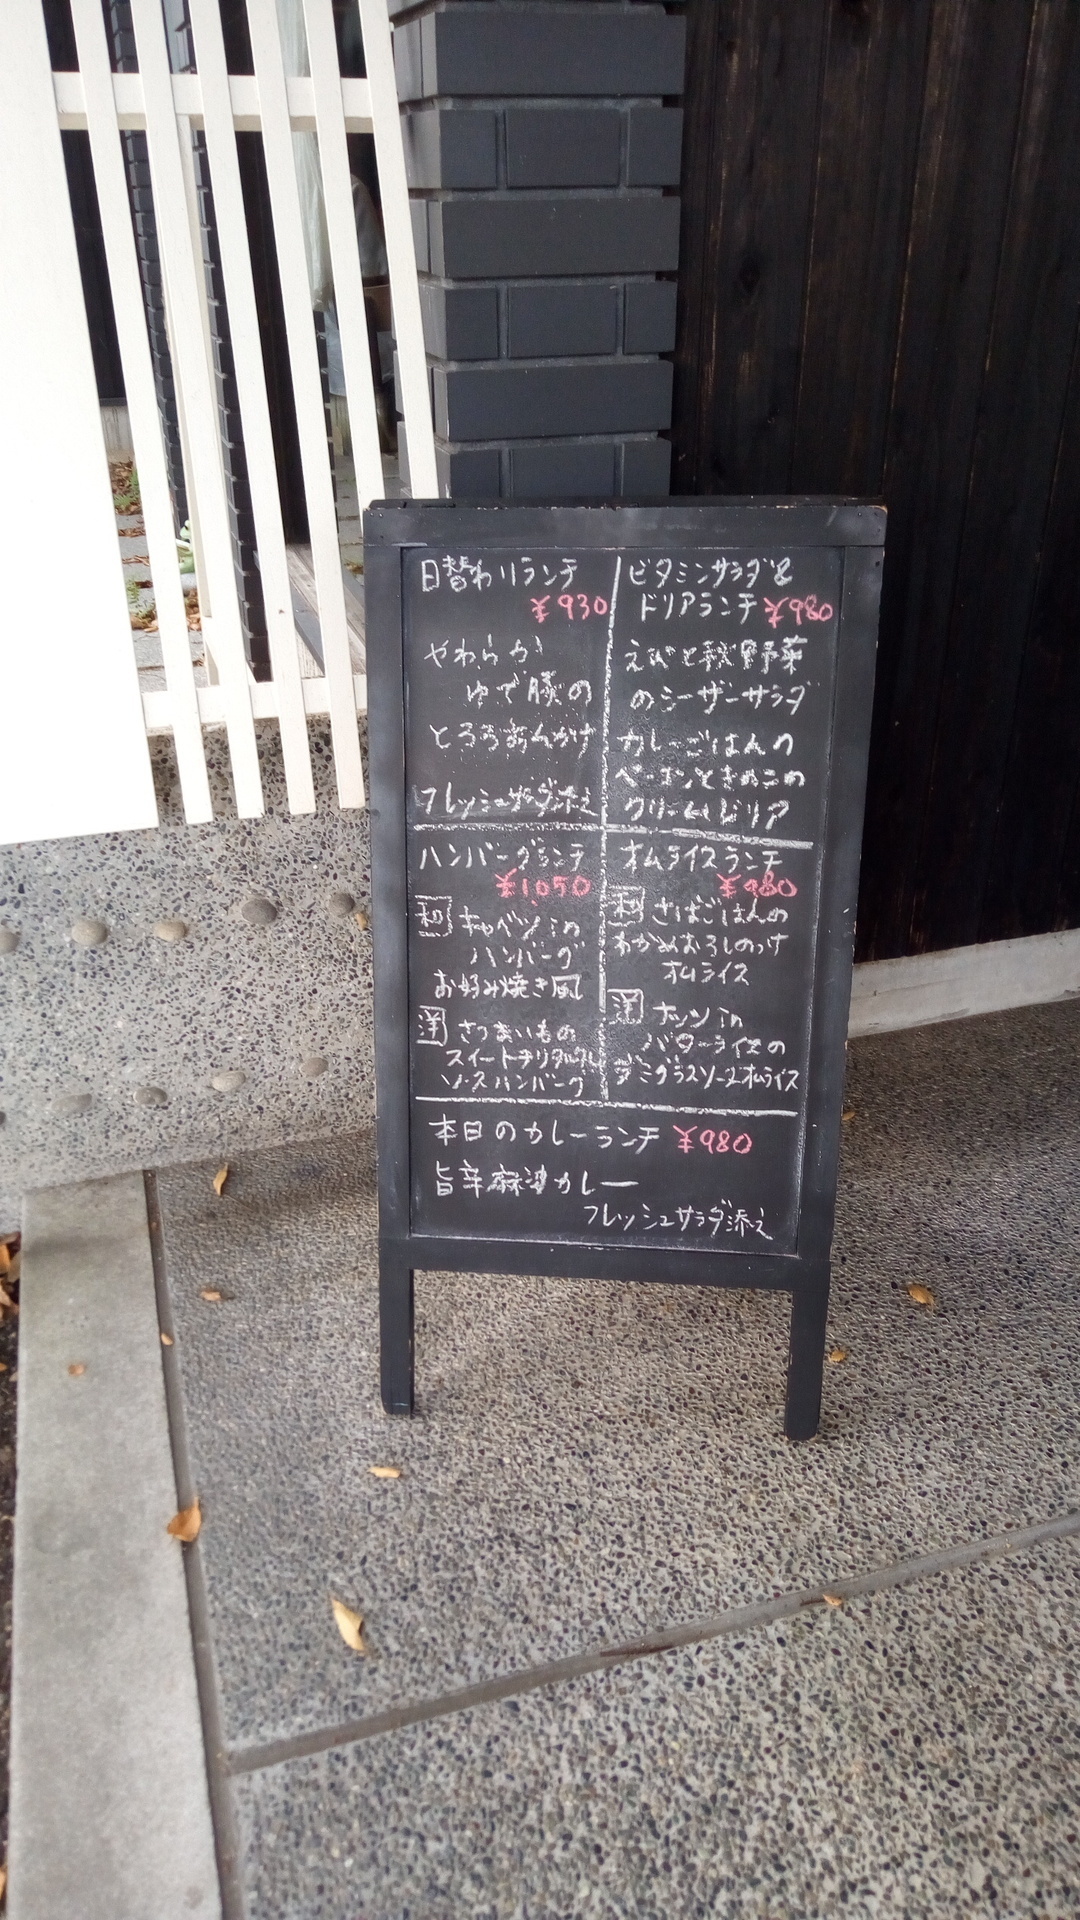 日替わりランチ
¥930
やわらか
ゆで豚の
とろろあんかけ
フレッシュサラダ添え
ビタミンサラダ&
ドリアランチ ¥980
えびと秋野菜
のシーザーサラダ
カレーごはんの
ベーコンときのこの
クリームドリア
ハンバーグランチ
¥1050
和 キャベツinの
ハンバーグ
お好み焼き風
洋 さつまいもの
スイートチリタルタル
ソースハンバーグ
オムライスランチ
¥980
和 さばごはんの
わかめおろしのっけ
オムライス
洋 ナッツin
バターライスの
デミグラスソースオムライス
本日のカレーランチ ¥980
旨辛麻婆カレー
フレッシュサラダ添え